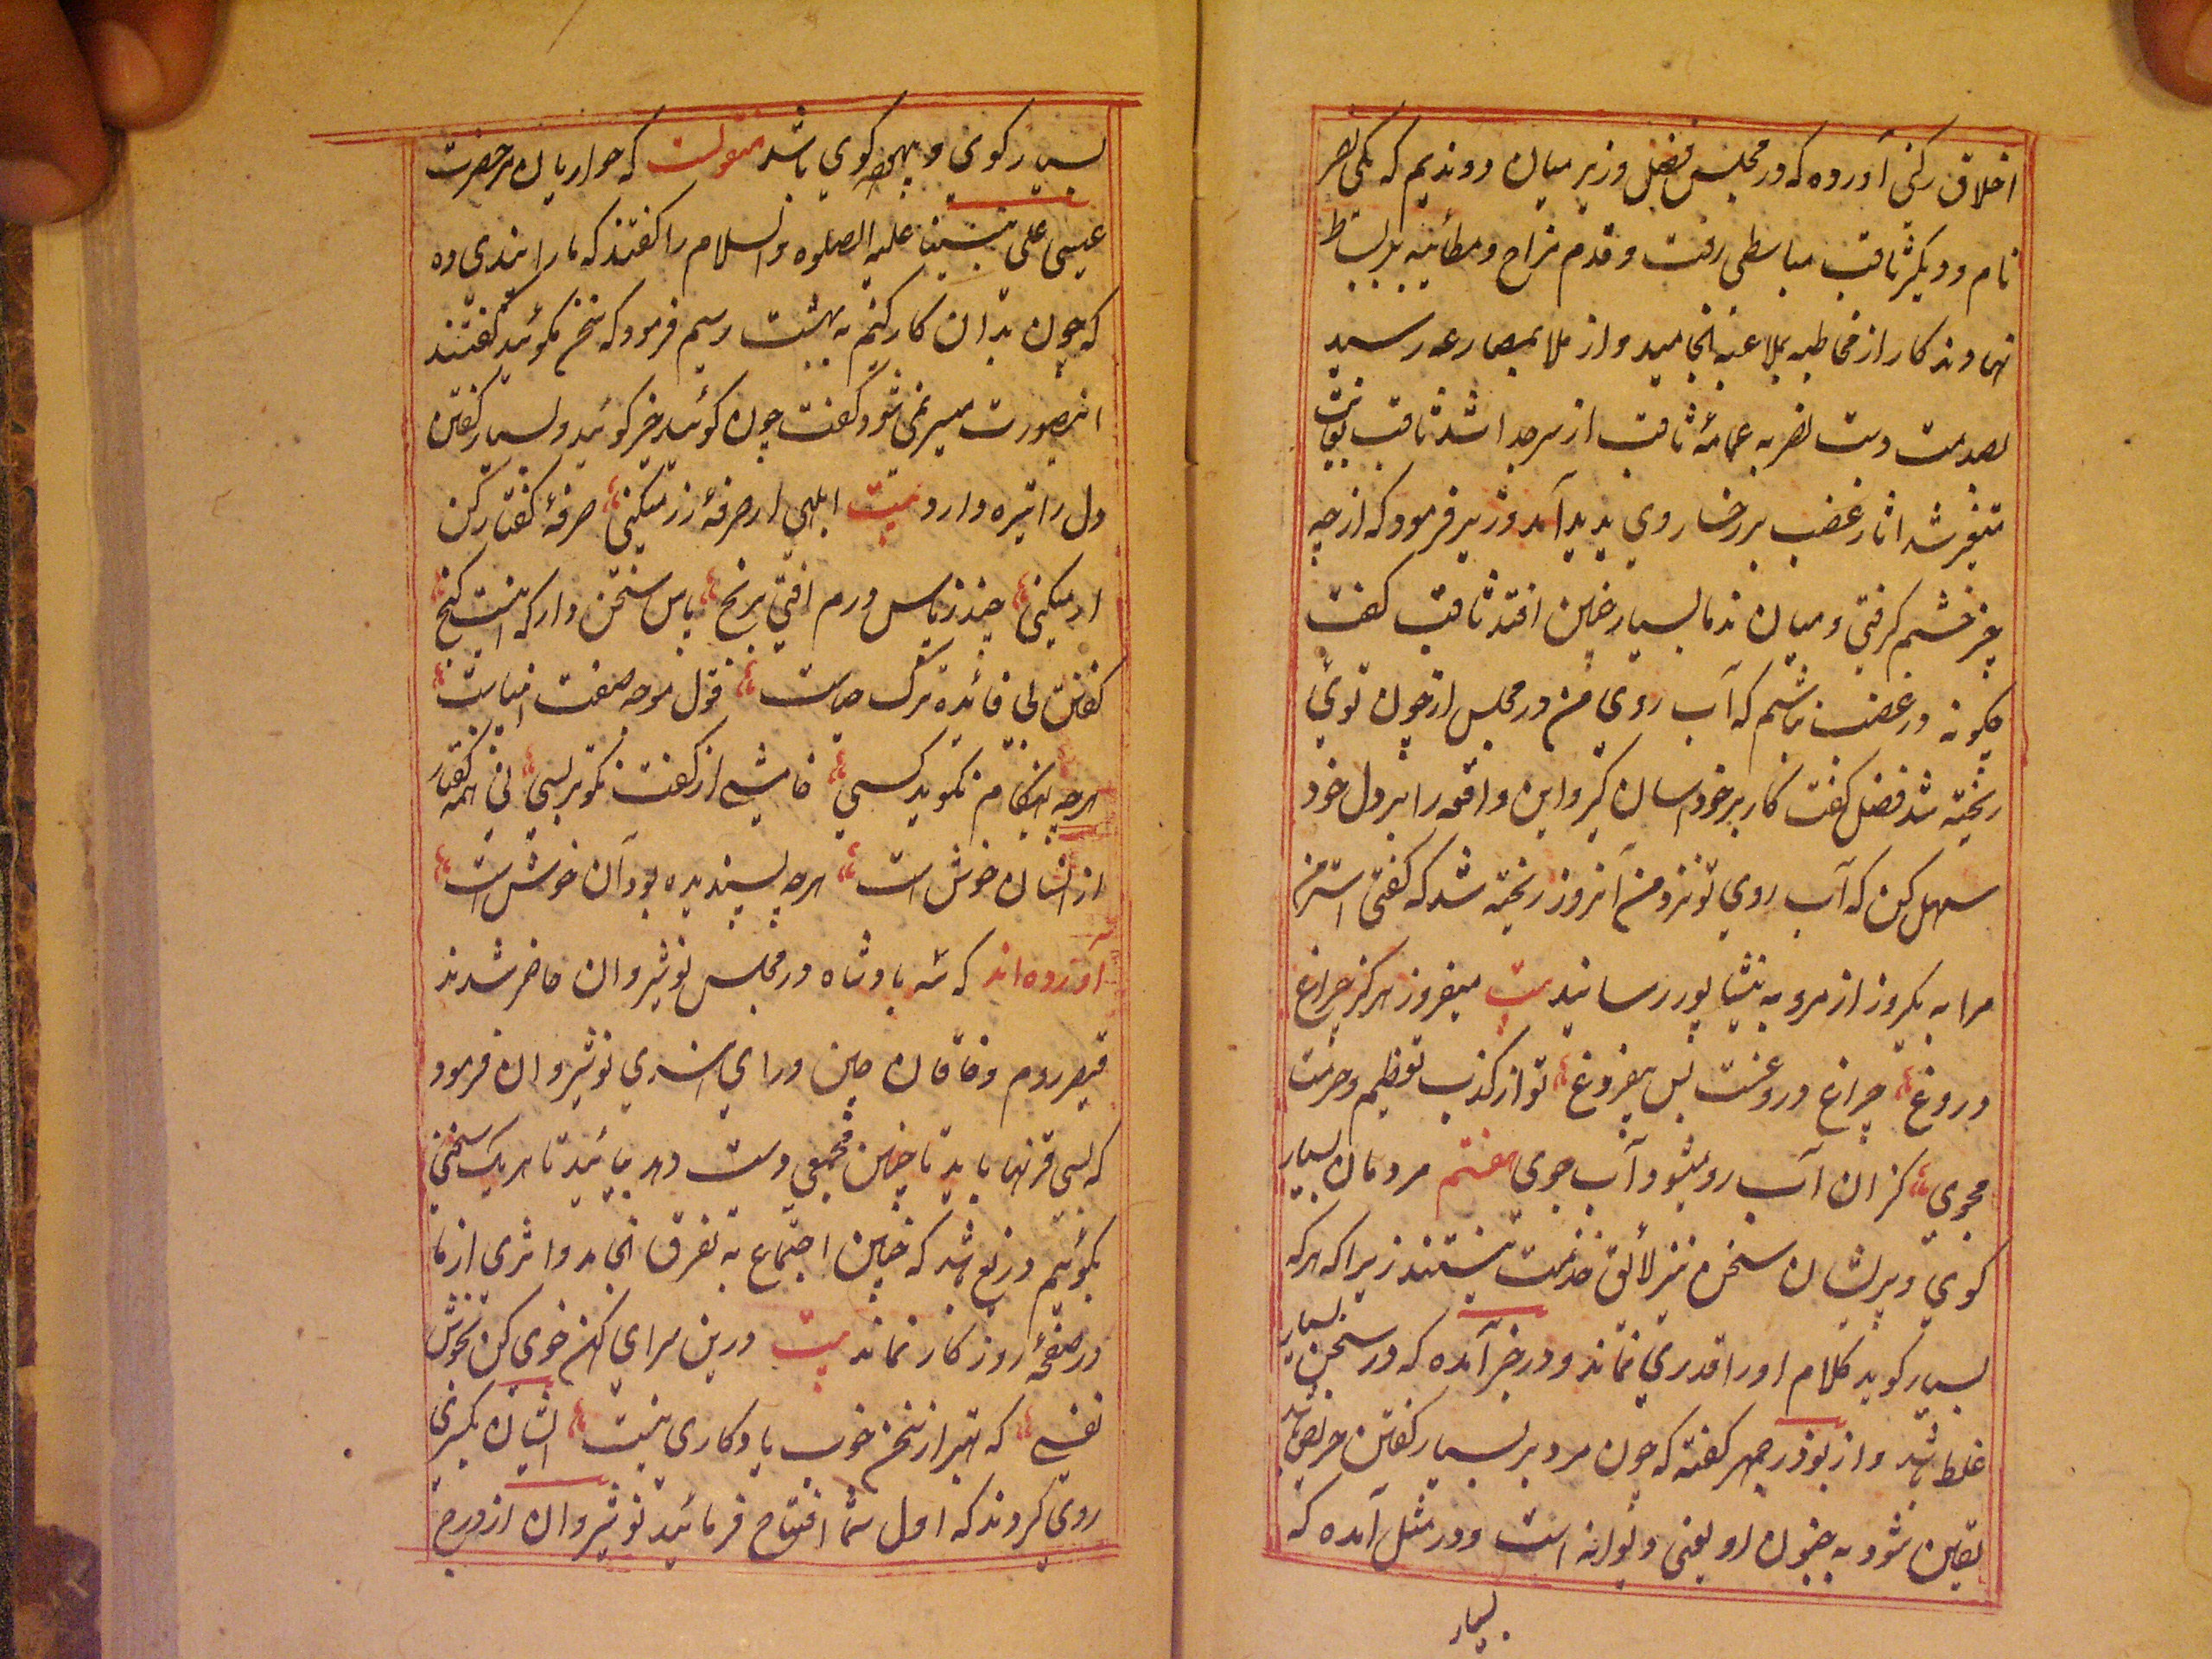 اخلاق رکنی آورده که در مجلس فضل وزیر میان دو ندیم که یکی نضر
نام و دیگر ثاقب مباسطی رفت و قدم مزاح و مطائبه بر بساط
نهادند کار از مخاطبه بملاعبه انجامید و از ملاعبه بمصارعه رسید
بصدمت دست نضر به عمامهٔ ثاقب از سر جدا شد ثاقب بغایت
متغیر شد اثار غضب بر رخسار وی پدید آمد وزیر فرمود که از چه
چیز خشم گرفتی و میان ندما بسیار چنین افتد ثاقب گفت
چگونه در غضب نباشم که آب روی من در مجلس از چون توئی
ریخته شد فضل گفت کار بر خود اسان گیر و این واقعه را بر دل خود
سهل کن که آب روی تو نزد من آنروز ریخته شد که گفتی استر من
مرا به یکروز از مرو به نیشاپور رسانید بیت میفروز هرگز چراغ
دروغ چراغ دروغست بس بیفروغ تو از کذب تعظیم و حرمت
مجوی کزان آب رو بشود آب جوی هفتم مردمان بسیار
گوی و پریشان سخن نیز لائق خدمت نیستند زیراکه هرکه
بسیار گوید کلام او را قدری نماند و در خبر آمده که در سخن بسیار
غلط باشد و از بوذرجمهر گفته که چون مرد بر بسیار گفتن حریص باشد
یقین شود به جنون او یعنی دیوانه است و در مثل آمده که
بسیار
بسیار گوی و بیهوده گوی باشد منقولست که حواریان مر حضرت
عیسی علی نبینا علیه الصلوه والسلام را گفتند که ما را پندی ده
که چون بدان کار کنیم به بهشت رسیم فرمود که سخن مگوئید گفتند
اینصورت میسر نمی شود گفت چون گوئید خیر گوئید و بسیار گفتن
دل را تیره دارد بیت ابلهی ار صرفهٔ زر میکنی صرفهٔ گفتار کن
ار میکنی چند ز پاس درم افتی برنج پاس سخن دار که اینست گنج
گفتن بی فائده ترک حیاست قول موجه صفت انبیاست
هرچه بهنگام نگوید کسی خامشی از گفت نکوتر بسی نی همه گفتار
از ایشان خوش است هرچه پسندیده بود آن خوش است
آورده‌اند که سه پادشاه در مجلس نوشیروان حاضر شدند
قیصر روم و خاقان چین و رای هندی نوشیروان فرمود
که بسی قرنها باید تا چنین مجمعی دست دهد بیائید تا هریک سخنی
بگوئیم دریغ باشد که چنین اجتماع به تفرق انجامد و اثری از ما
در صفحهٔ روزگار نماند بیت درین سرای کهن خوی کن بخوش
نفسی که بهتر از سخن خوب یادگاری نیست ایشان بکسری
روی کردند که اول شما افتتاح فرمائید نوشیروان از درج